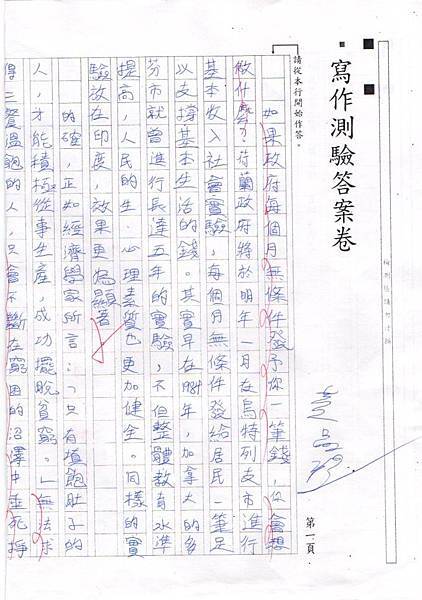 寫作測驗答案卷
請從本行開始作答。
如果政府每個月無條件發予你一筆錢,你會想
做什麼?荷蘭政府將於明年一月在烏特列支市進行
基本收入社會實驗,每個月無條件發給居民一筆足
以支撐基本生活的錢。其實早在年,加拿大的多
芬市就曾進行長達五年的實驗,不但整體教育水準
提高,人民的生、心理素質也更加健全。同樣的實
驗放在印度,效果更為顯著。
的確,正如經濟學家所言:「只有填飽肚子的
人,才能積極從事生產,成功擺脫貧窮。」無法求
得三餐溫飽的人,只會不斷在窮困的沼澤中垂死掙
第一頁